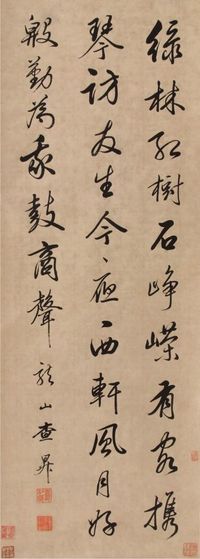 緑林紅樹石峥嶸有客攜
琴訪友生今夜西軒風月好
殷勤為我鼓商聲 龍山查昇